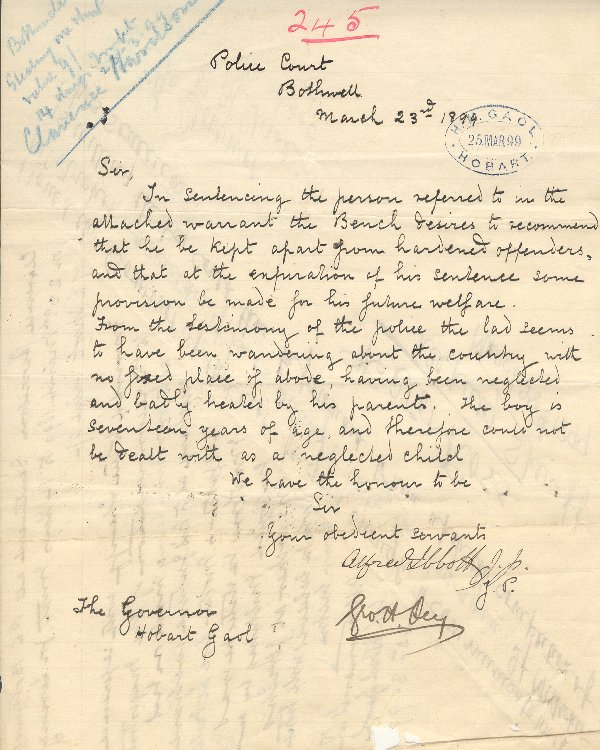 245
Bothwell
Stealing one shirt
value 9/
14 days
Clarence
Police Court
Bothwell
March 23rd 1899
H.M. GAOL
25 MAR 99
HOBART
Sir,
In sentencing the person referred to in the
attached warrant the Bench desires to recommend
that he be kept apart from hardened offenders,
and that at the expiration of his sentence some
provision be made for his future welfare.
From the testimony of the police the lad seems
to have been wandering about the country with
no fixed place of abode, having been neglected
and badly treated by his parents. The boy is
seventeen years of age, and therefore could not
be dealt with as a neglected child
We have the honour to be
Sir
Your obedient servants
Alfred Ibbott J.P.
J.P.
Geo. H.
The Governor
Hobart Gaol